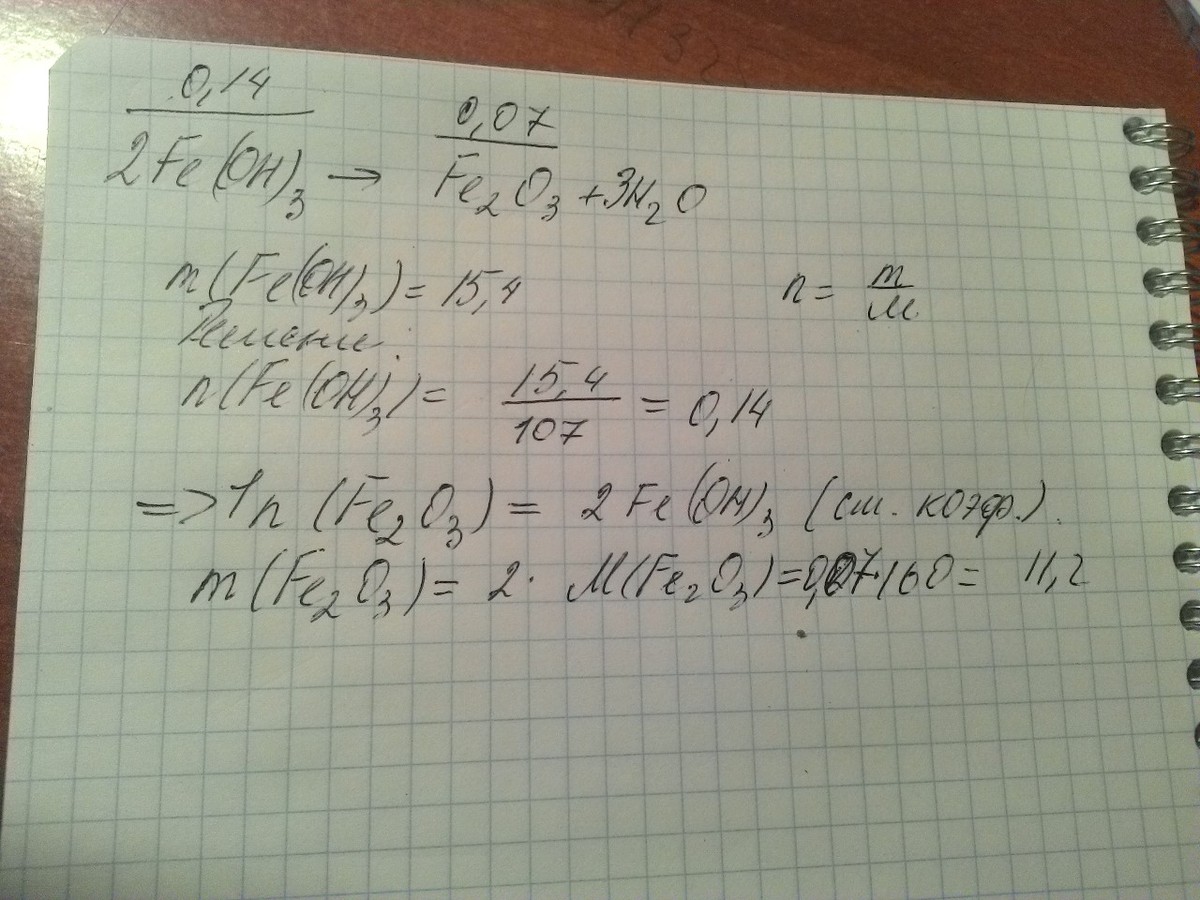 0,14 0,07
2Fe(OH)₃ → Fe₂O₃ + 3H₂O
m(Fe(OH)₃) = 15,4 n = m/M
Решение
n(Fe(OH)₃) = 15,4/107 = 0,14
=> 1n (Fe₂O₃) = 2Fe(OH)₃ (см. коэф.).
m(Fe₂O₃) = 2· M(Fe₂O₃) = 0,07·160 = 11,2